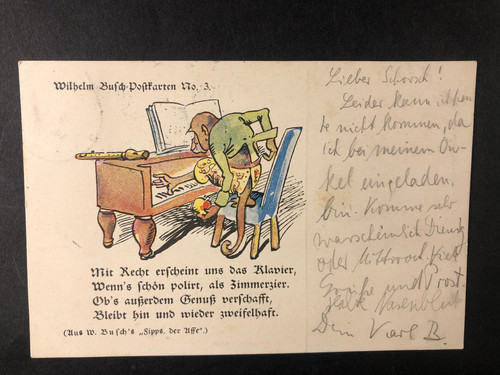 Wilhelm Busch-Postkarten No. 3.
Mit Recht erscheint uns das Klavier,
Wenn's schön polirt, als Zimmerzier.
Ob's außerdem Genuß verschafft,
Bleibt hin und wieder zweifelhaft.
(Aus W. Busch's „Fipps, der Affe“.)
Lieber Schorsch!
Leider kann ich heu
te nicht kommen, da
ich bei meinem On-
kel eingeladen
bin. Komme sehr
warscheinlich Dienstg
oder Mittwoch.
Grüße und Prost.
Dein Karl B.